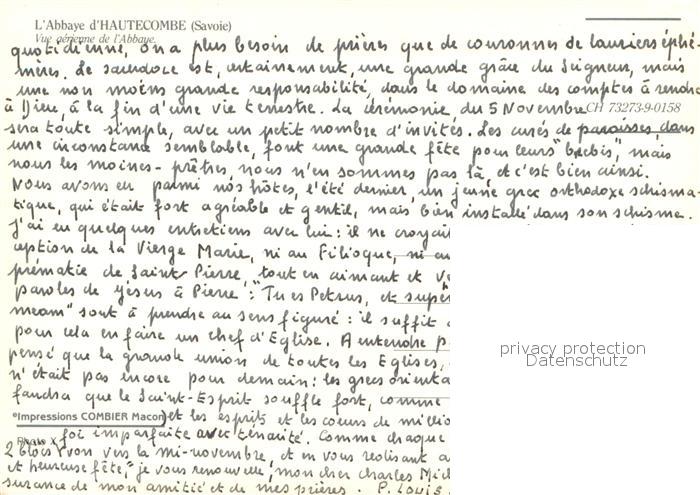 L'Abbaye d'HAUTECOMBE (Savoie)
Vue aérienne de l'Abbaye.
quotidienne, on a plus besoin de prières que de couronnes de lauriers éphé-
mères. Le sacerdoce est, certainement, une grande grâce du Seigneur, mais
une non moins grande responsabilité, dans le domaine des comptes à rendre
à Dieu, à la fin d'une vie terrestre. La cérémonie, du 5 Novembre
CH 73273-9-0158
sera toute simple, avec un petit nombre d'invités. Les curés de paroisses, dans
une circonstance semblable, font une grande fête pour leurs "brebis", mais
nous les moines-prêtres, nous n'en sommes pas là, et c'est bien ainsi.
Nous avons eu parmi nos hôtes, l'été dernier, un jeune grec orthodoxe schisma-
tique, qui était fort agréable et gentil, mais bien installé dans son schisme.
J'ai eu quelques entretiens avec lui: il ne croyait
ception de la Vierge Marie, ni au Filioque, ni au
prématie de Saint Pierre, tout en aimant et
paroles de Jésus à Pierre: "Tu es Petrus, et super
meam" sont à prendre au sens figuré: il suffit
pour cela en faire un chef d'Eglise. A entendre
pensé que la grande union de toutes les Eglises,
n'était pas encore pour demain: les grecs orienta
faudra que le Saint-Esprit souffle fort, comme
©Impressions COMBIER Macon
et les esprits et les cœurs de millio
foi imparfaite avec ténacité. Comme chaque
2 blocs Yvon vers la mi-novembre, et en vous réalisant
et heureuse fête," je vous renouvelle, mon cher Charles Mich
surance de mon amitié et de mes prières. P. Louis
privacy protection
Datenschutz